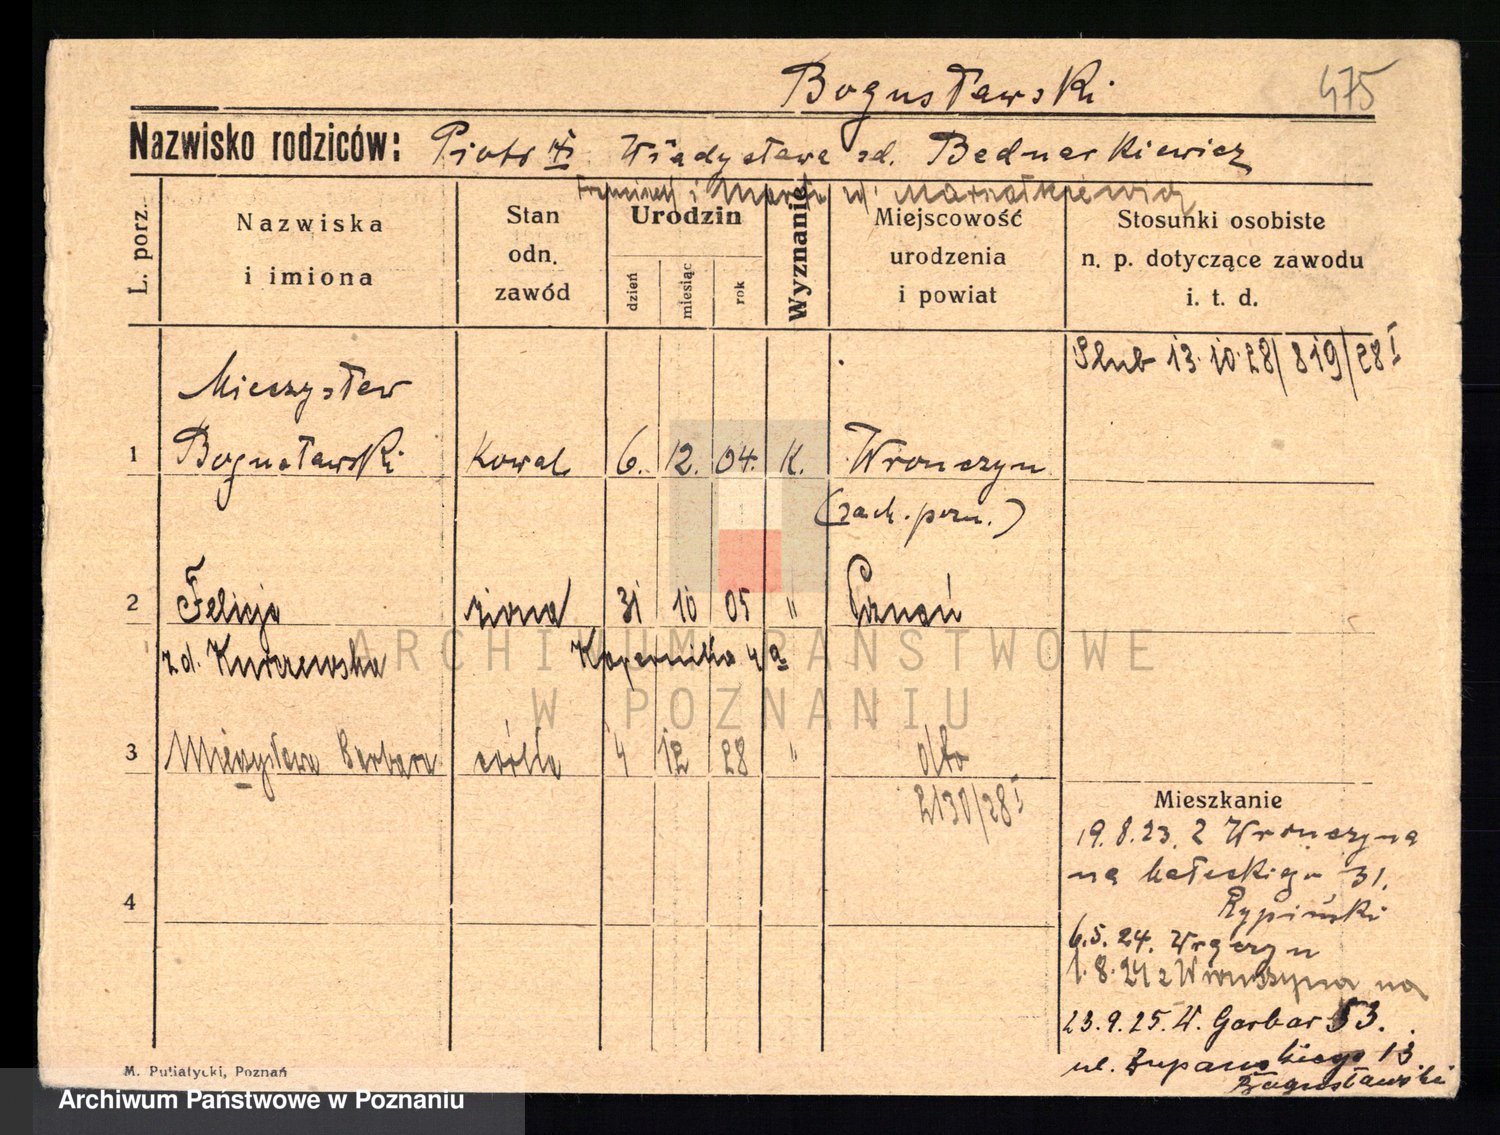 Bogusławski
475
Nazwisko rodziców: Piotr i Władysława zd. Bednarkiewicz
Franciszek i Maria
L. porz.
Nazwiska
i imiona
Stan
odn.
zawód
Urodzin
dzień
miesiąc
rok
Wyznanie
Miejscowość
urodzenia
i powiat
Stosunki osobiste
n. p. dotyczące zawodu
i. t. d.
Ślub 13.10.28/819/28 I
Mieczysław
1 Bogusławski kowal 6. 12. 04. K. Wronczyn
(zach. pozn.)
2 Felicja żona 31 10 05 " Poznań
z d. Kurczewska Kopernika 4 a
3 Mieczysława Barbara córka 4 12 28 "
2130/28 I
4
Mieszkanie
19.8.23. z Wronczyna
na Małeckiego 31.
Rypiński
6.5.24. Wronczyn
1.8.24 z Wronczyna na
23.9.25. W. Garbar 53.
ul. Żupańskiego 13
Bogusławski
M. Putiatycki, Poznań
ARCHIWUM PAŃSTWOWE
W POZNANIU
Archiwum Państwowe w Poznaniu